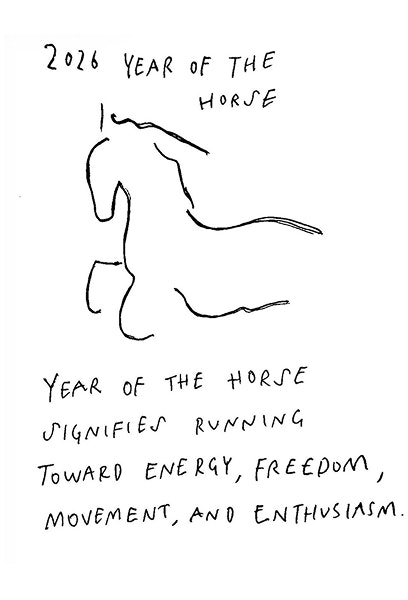 2026 YEAR OF THE
HORSE
YEAR OF THE HORSE
SIGNIFIES RUNNING
TOWARD ENERGY, FREEDOM,
MOVEMENT, AND ENTHUSIASM.